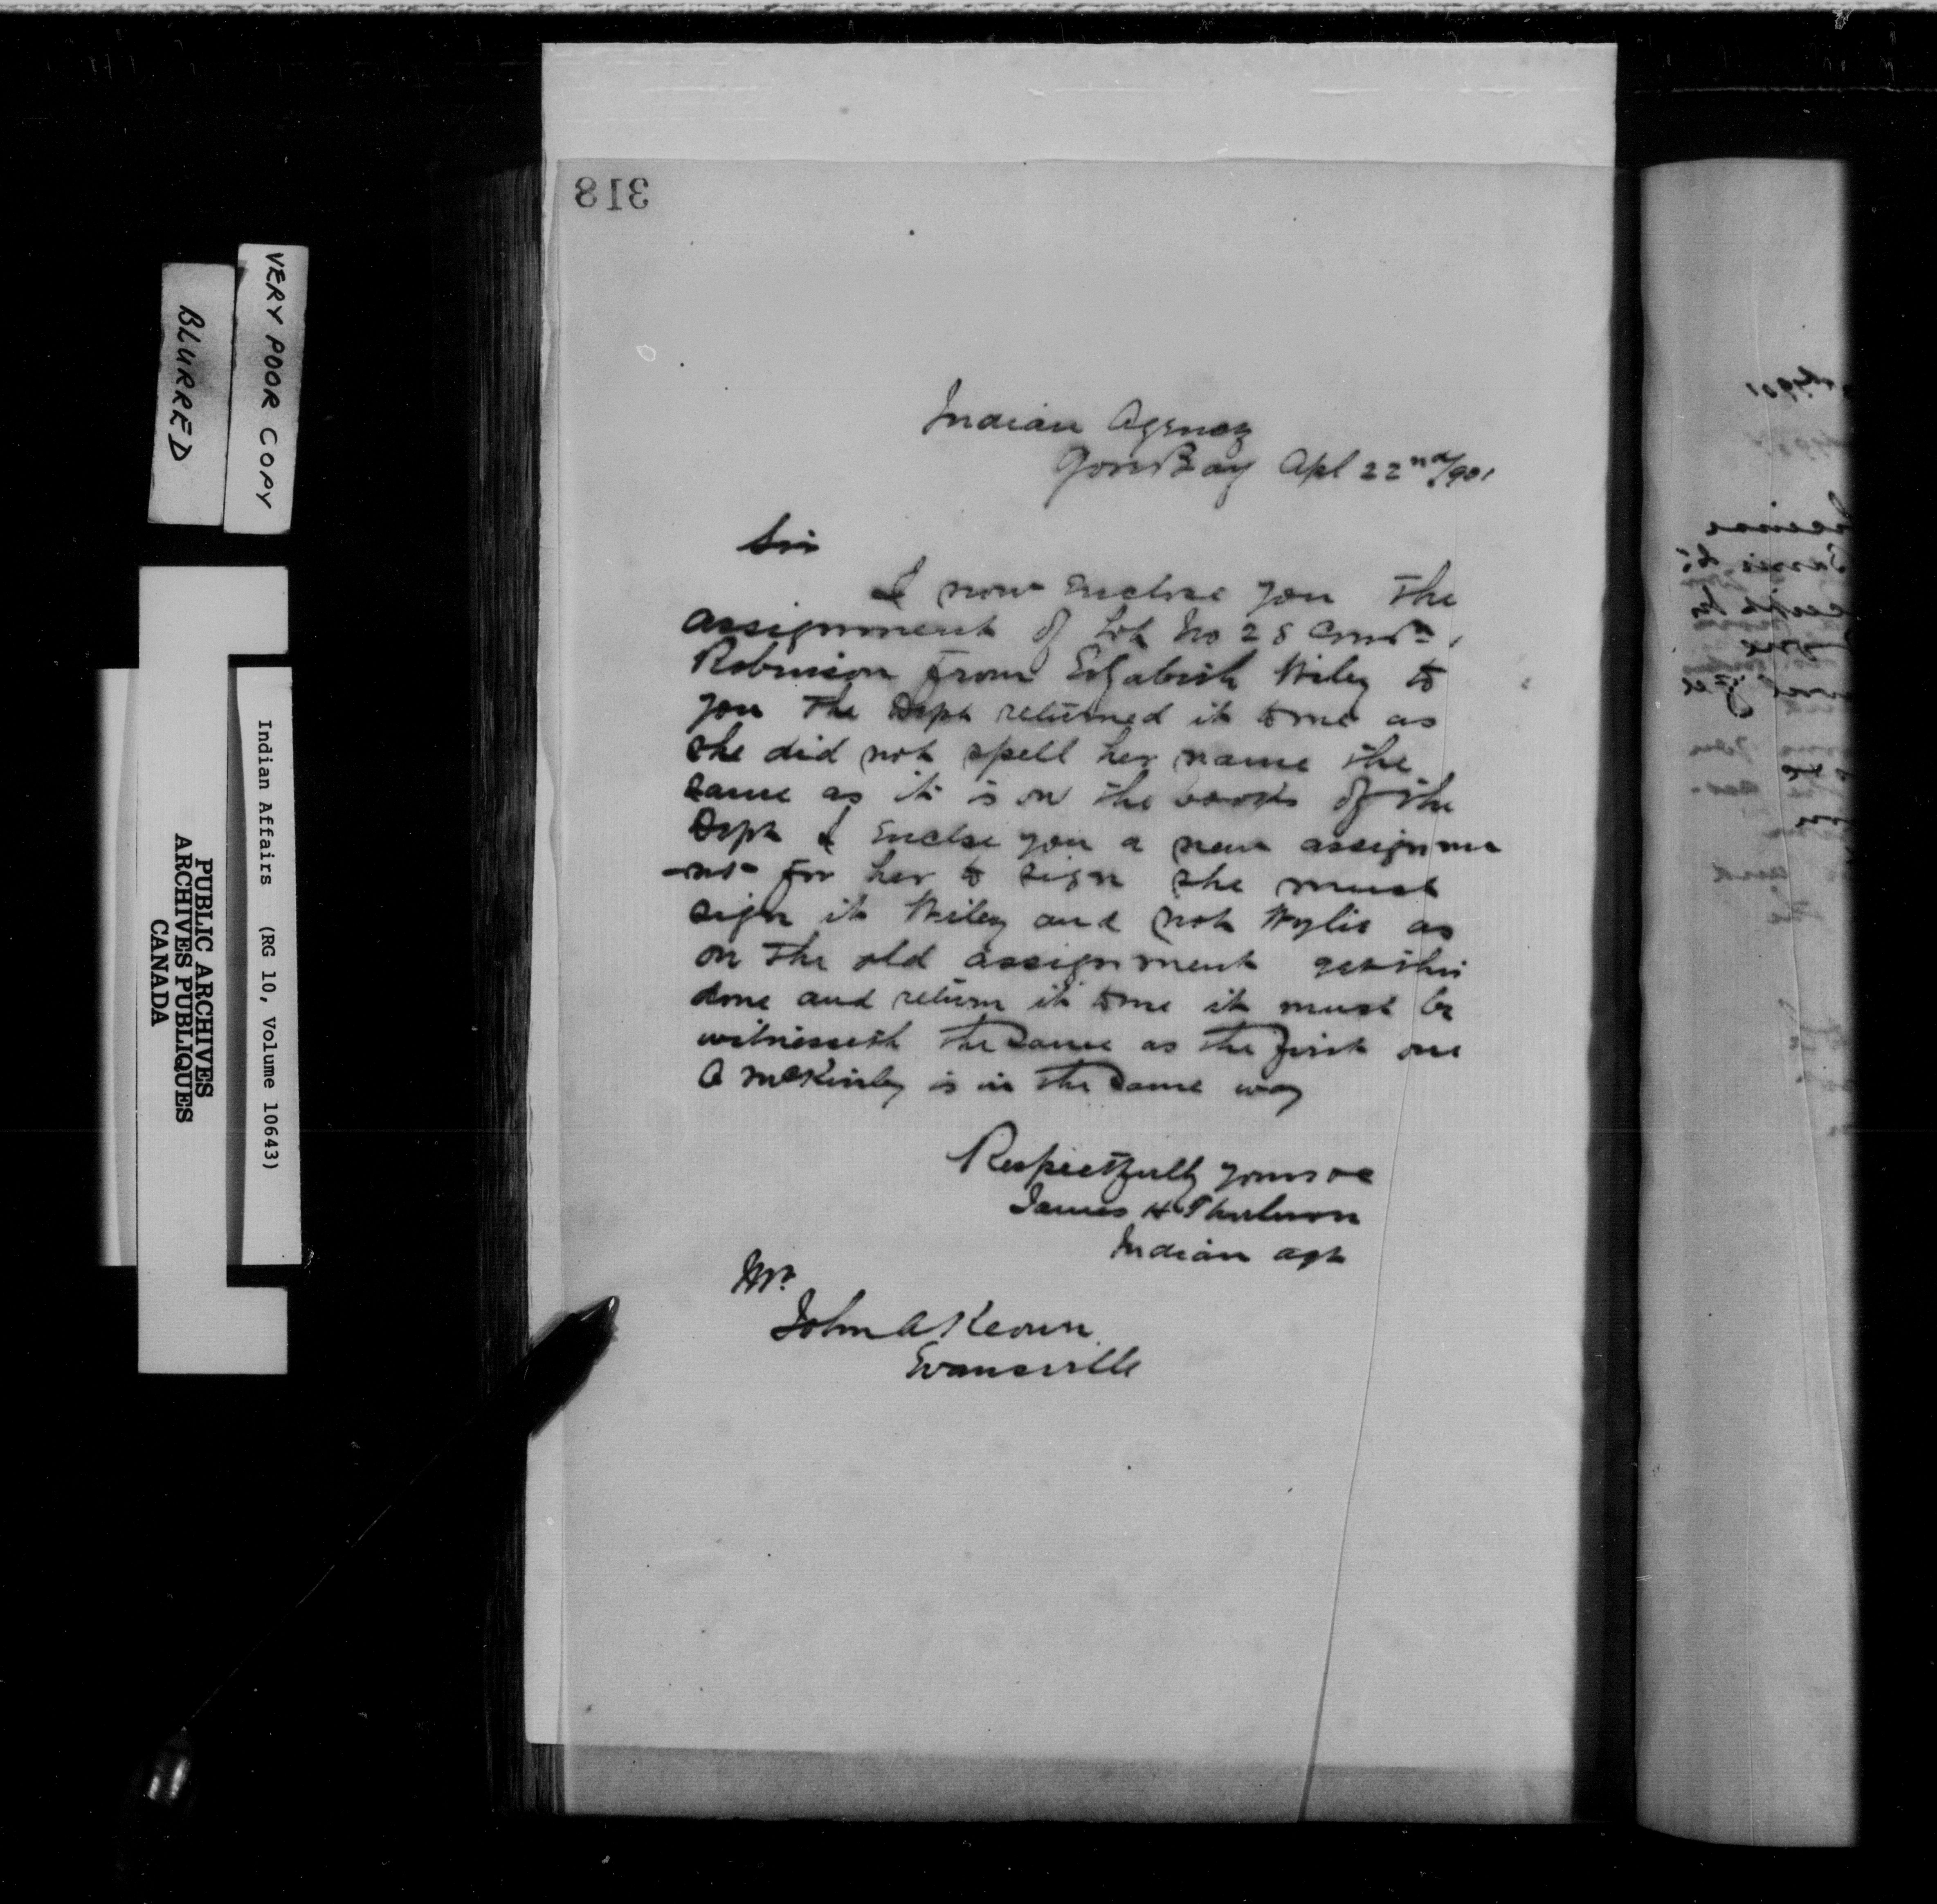 318
Indian Agency
Gore Bay Apl 22nd/901
Sir
I now Enclose you The
assignment of Lot No 28
Robinson from Elizabeth Wiley to
you The Dept returned it to me as
she did not spell her name the
same as it is on the books of the
Dept I Enclse you a new assignme
-nt for her to sign she must
sign it Wiley and not Wylie as
on The old assignment get this
done and return it to me it must be
witnesseth the same as the first one
A McKinley is in the same way
Respectfully yours &c
James H Thorburn
Indian agt
Mr.
John A Keown
Evansville
VERY POOR COPY
BLURRED
Indian Affairs (RG 10, Volume 10643)
PUBLIC ARCHIVES
ARCHIVES PUBLIQUES
CANADA